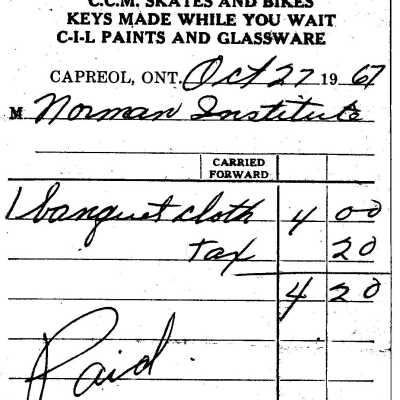 C.C.M. SKATES AND BIKES
KEYS MADE WHILE YOU WAIT
C-I-L PAINTS AND GLASSWARE
CAPREOL, ONT. Oct 27 19 67
M Norman Institute
CARRIED
FORWARD
1 banquet cloth 4 00
tax 20
4 20
Paid.